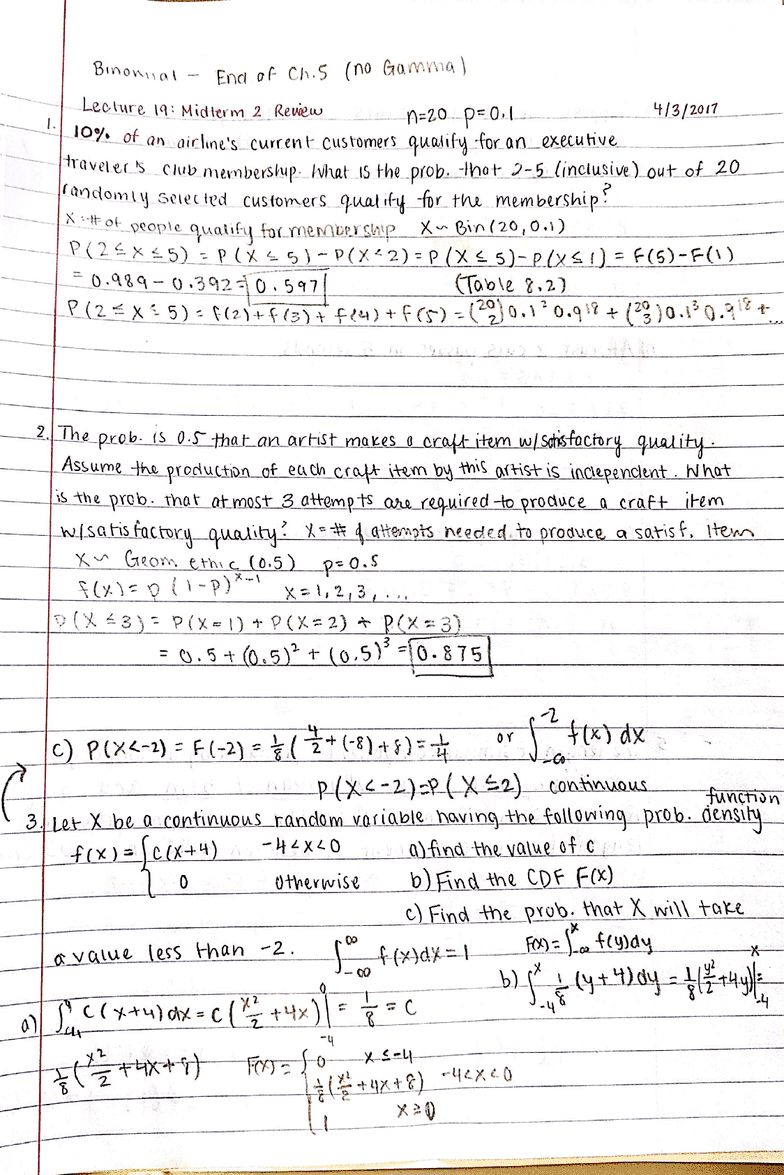 Binomial - End of Ch.5 (no Gamma)
Lecture 19: Midterm 2 Review n=20 p=0.1 4/3/2017
1. 10% of an airline's current customers qualify for an executive
traveler's club membership. What is the prob. that 2-5 (inclusive) out of 20
randomly selected customers qualify for the membership?
X=# of people qualify for membership X~Bin(20,0.1)
P(2≤X≤5) = P(X≤5)-P(X<2) = P(X≤5)-P(X≤1) = F(5)-F(1)
= 0.989-0.392= 0.597 (Table 8.2)
P(2≤X≤5) = f(2)+f(3)+f(4)+f(5) = (20 2)0.1² 0.9¹⁸ + (20 3)0.1³ 0.9¹⁸ + ...
2. The prob. is 0.5 that an artist makes a craft item w/satisfactory quality.
Assume the production of each craft item by this artist is independent. What
is the prob. that at most 3 attempts are required to produce a craft item
w/satisfactory quality? X=# of attempts needed to produce a satisf. item
X~ Geometric (0.5) p=0.5
f(x) = p(1-p)^x-1 x=1,2,3,...
P(X≤3) = P(X=1) + P(X=2) + P(X=3)
= 0.5+(0.5)²+(0.5)³ = 0.875
c) P(X<-2) = F(-2) = 1/8(4/2+(-8)+8) = 1/4 or ∫_-∞^-2 f(x) dx
P(X<-2)=P(X≤2) continuous
function
3. Let X be a continuous random variable having the following prob. density
f(x) = { c(x+4) -4<x<0 a) find the value of c
0 otherwise b) Find the CDF F(x)
c) Find the prob. that X will take
a value less than -2. ∫_-∞^∞ f(x)dx=1 F(x)=∫_-∞^x f(y)dy
b) ∫_-4^x 1/8(y+4)dy = 1/8(y²/2+4y)|_-4^x =
a) ∫_-4^0 c(x+4)dx = c(x²/2+4x)|_-4^0 = 1/8 = c
1/8(x²/2+4x+8) F(x) = { 0 x≤-4
1/8(x²/2+4x+8) -4<x<0
1 x≥0